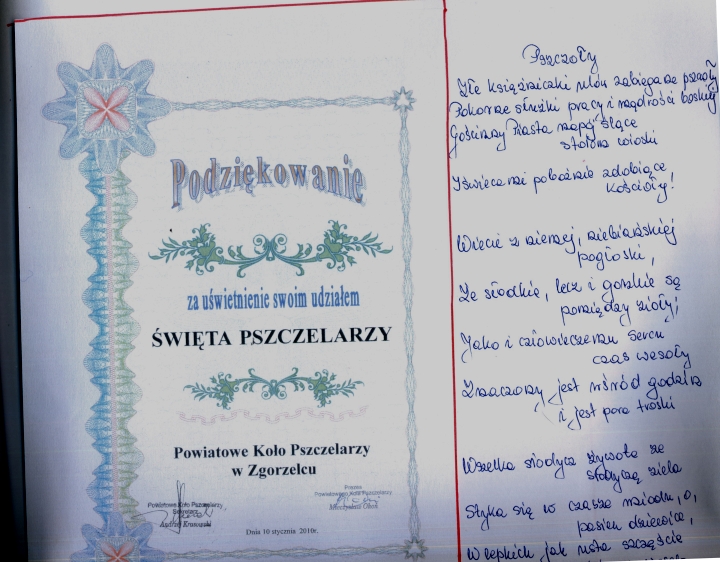 Podziękowanie
za uświetnienie swoim udziałem
ŚWIĘTA PSZCZELARZY
Powiatowe Koło Pszczelarzy
w Zgorzelcu
Powiatowe Koło Pszczelarzy
Sekretarz
Andrzej
Prezes
Powiatowego Koła Pszczelarzy
Mieczysław
Dnia 10 stycznia 2010r.
Pszczoły
księżniczki ulów zabiegane pszczoły
Pokorne służki pracy i mądrości boskiej
Gościnny Piasta napój ślące
stołom wioski
I świecami pobożnie zdobiące
kościoły!
Wiecie z
pogłoski,
Że słodkie, lecz i gorzkie są
pomiędzy zioły;
Jako i człowieczemu sercu
czas wesoły
Znaczony jest wśród godzin
i jest pora troski
Wszelka słodycz żywota ze
słodyczą ziela
Styka się w czasze miodu, o,
pasiek dziewice,
W lepkich jak usta szczęście